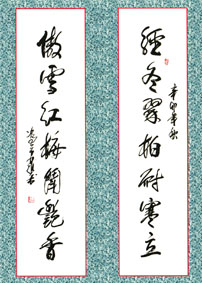 經冬翠柏耐寒立
辛卯年秋
傲雪紅梅艷香